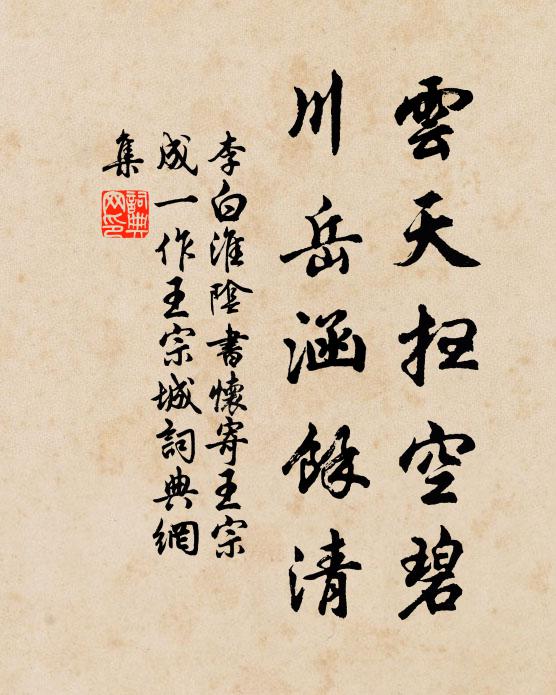 雲天扫空碧
川岳涵餘清
李白淮陰書懷寄王宗
成一作王宗城詞典網
集
詞典
网印